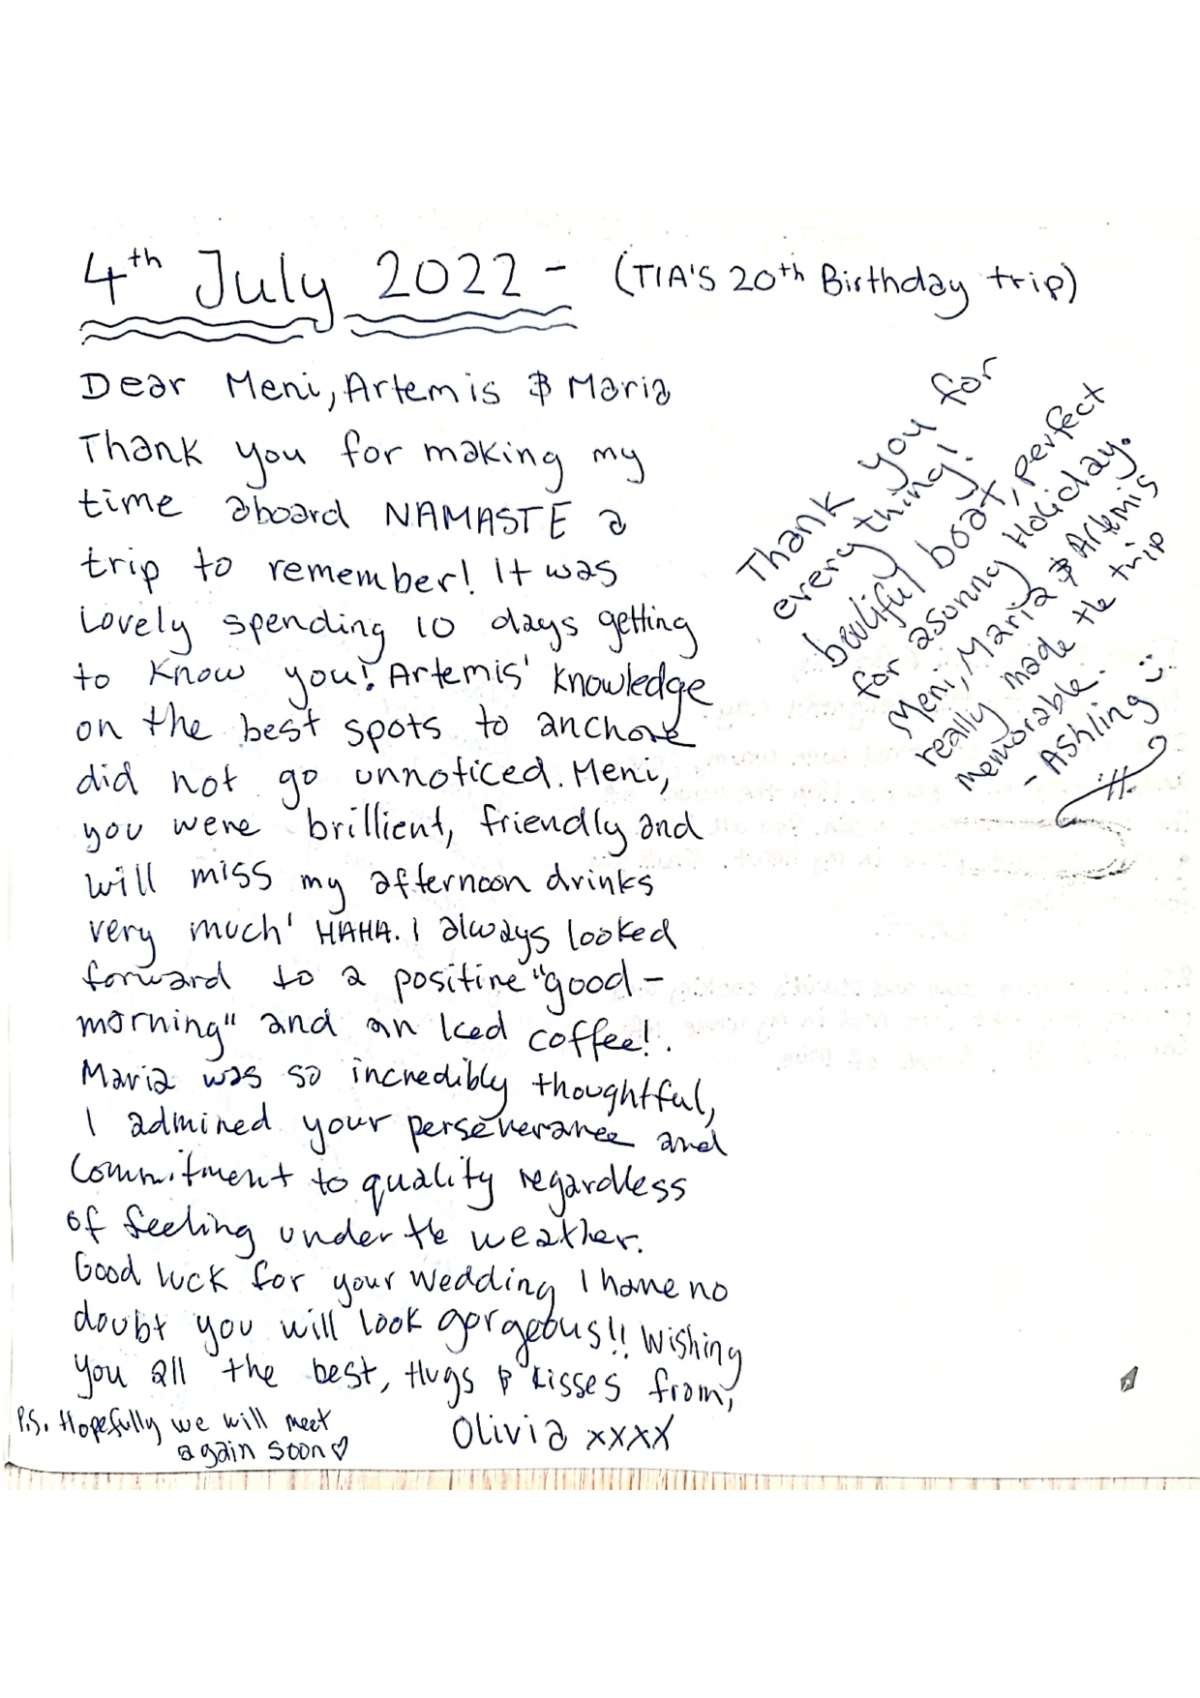 4th July 2022 - (TIA'S 20th Birthday trip)
Dear Meni, Artemis & Maria
Thank you for making my
time aboard NAMASTE a
trip to remember! It was
Lovely spending 10 days getting
to know you! Artemis' knowledge
on the best spots to anchore
did not go unnoticed. Meni,
you were brillient, friendly and
will miss my afternoon drinks
very much' HAHA. I always looked
forward to a positive "good-
morning" and an Iced coffee!.
Maria was so incredibly thoughtful,
I admired your perseverance and
Commitment to quality regardless
of feeling under the weather.
Good luck for your wedding I have no
doubt you will look gorgeous!! Wishing
you all the best, Hugs & kisses from,
Olivia xxxx
P.S. Hopefully we will meet
again soon ♡
Thank you for
everything!
beautiful boat, perfect
for a sunny Holiday.
Meni, Maria & Artemis
really made the trip
memorable.
- Ashling :)